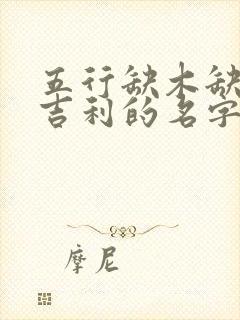 五行缺木缺
吉利的名字
摩尼